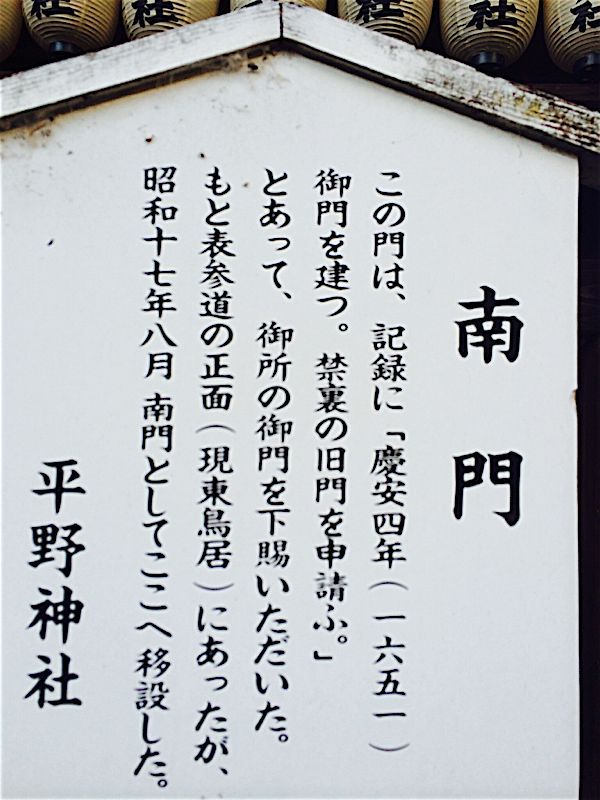 社
社
社
社
南門
この門は、記録に「慶安四年(一六五一)
御門を建つ。禁裏の旧門を申請ふ。」
とあって、御所の御門を下賜いただいた。
もと表参道の正面(現東鳥居)にあったが、
昭和十七年八月 南門としてここへ移設した。
平野神社